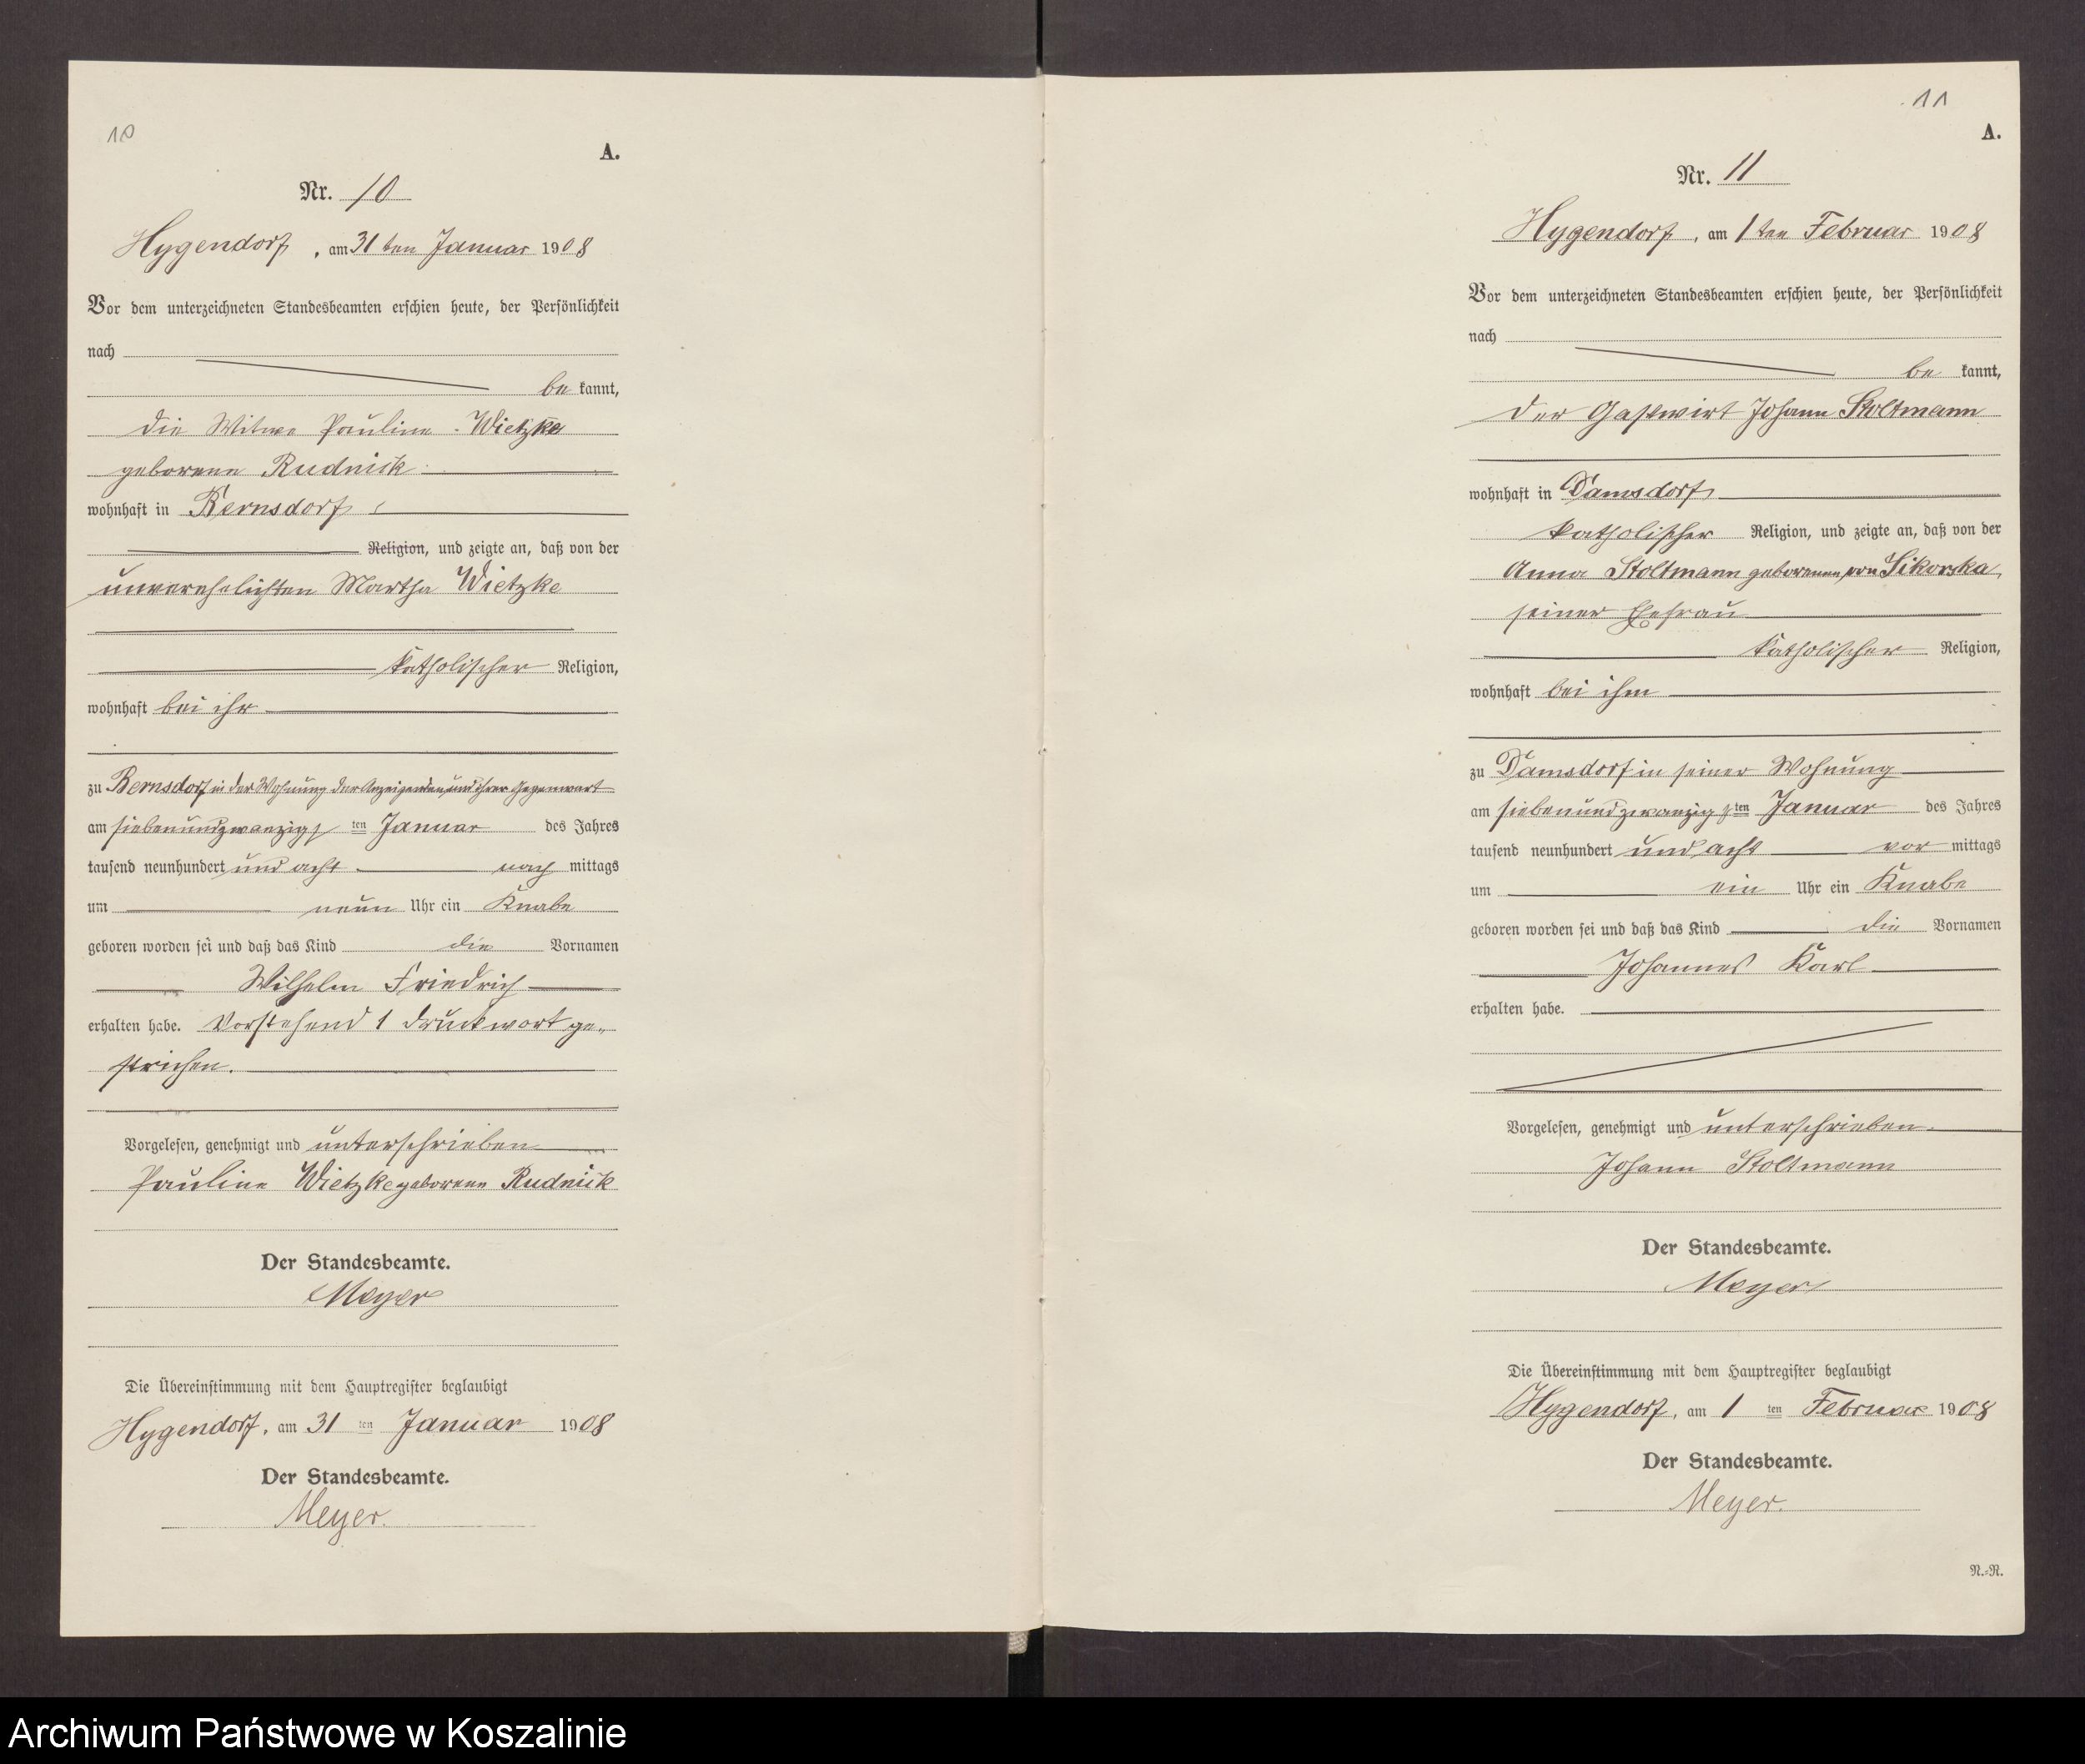 10
A.
Nr. 10
Hygendorf, am 31ten Januar 1908
Vor dem unterzeichneten Standesbeamten erschien heute, der Persönlichkeit
nach
be kannt,
die Witwe Pauline Wietzke
geborene Rudnick
wohnhaft in Bernsdorf
Religion, und zeigte an, daß von der
unverehelichten Martha Wietzke
katholischer Religion,
wohnhaft bei ihr
zu Bernsdorf in der Wohnung der Anzeigenden und ihrer Gegenwart
am siebenundzwanzigsten Januar des Jahres
tausend neunhundert und acht nach mittags
um neun Uhr ein Knabe
geboren worden sei und daß das Kind die Vornamen
Wilhelm Friedrich
erhalten habe. Vorstehend 1 Druckwort ge-
strichen.
Vorgelesen, genehmigt und unterschrieben
Pauline Wietzke geborene Rudnick
Der Standesbeamte.
Meyer
Die Übereinstimmung mit dem Hauptregister beglaubigt
Hygendorf, am 31 ten Januar 1908
Der Standesbeamte.
Meyer.
11
A.
Nr. 11
Hygendorf, am 1ten Februar 1908
Vor dem unterzeichneten Standesbeamten erschien heute, der Persönlichkeit
nach
be kannt,
der Gastwirt Johann Stoltmann
wohnhaft in Damsdorf
katholischer Religion, und zeigte an, daß von der
Anna Stoltmann geborenen von Sikorska,
seiner Ehefrau
katholischer Religion,
wohnhaft bei ihm
zu Damsdorf in seiner Wohnung
am siebenundzwanzigsten Januar des Jahres
tausend neunhundert und acht vor mittags
um ein Uhr ein Knabe
geboren worden sei und daß das Kind die Vornamen
Johannes Karl
erhalten habe.
Vorgelesen, genehmigt und unterschrieben.
Johann Stoltmann
Der Standesbeamte.
Meyer
Die Übereinstimmung mit dem Hauptregister beglaubigt
Hygendorf, am 1 ten Februar 1908
Der Standesbeamte.
Meyer.
N.-R.
Archiwum Państwowe w Koszalinie